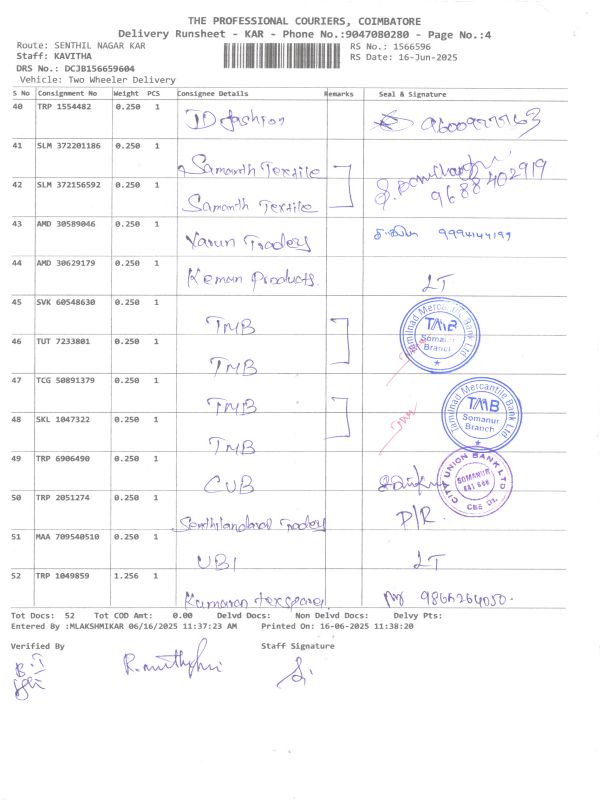 THE PROFESSIONAL COURIERS, COIMBATORE
Delivery Runsheet - KAR - Phone No.:9047080280 - Page No.:4
Route: SENTHIL NAGAR KAR RS No.: 1566596
Staff: KAVITHA RS Date: 16-Jun-2025
DRS No.: DCJB156659604
Vehicle: Two Wheeler Delivery
S No Consignment No Weight PCS Consignee Details Remarks Seal & Signature
40 TRP 1554482 0.250 1 JD fashion
41 SLM 372201186 0.250 1 Samanth Textile
42 SLM 372156592 0.250 1 Samanth Textile 9688402919
43 AMD 30589046 0.250 1 Varun Traders
44 AMD 30629179 0.250 1 Keman Products. LT
45 SVK 60548630 0.250 1 TMB
Tamilnad Mercantile Bank Ltd TMB Somanur Branch
46 TUT 7233801 0.250 1 TMB
47 TCG 50891379 0.250 1 TMB
Tamilnad Mercantile Bank Ltd TMB Somanur Branch
48 SKL 1047322 0.250 1 TMB
49 TRP 6906490 0.250 1 CUB
CITY UNION BANK LTD SOMANUR
50 TRP 2051274 0.250 1 D/R.
51 MAA 709540510 0.250 1 UBI LT
52 TRP 1049859 1.256 1 Kumaran 9866264050.
Tot Docs: 52 Tot COD Amt: 0.00 Delvd Docs: Non Delvd Docs: Delvy Pts:
Entered By :MLAKSHMIKAR 06/16/2025 11:37:23 AM Printed On: 16-06-2025 11:38:20
Verified By Staff Signature